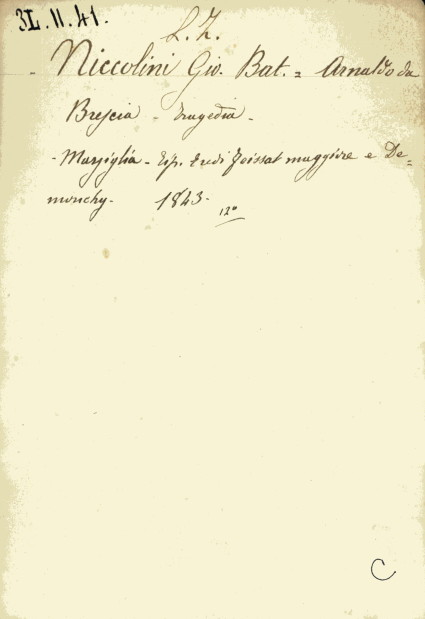 3L.II.41.
L.Z.
Niccolini Gio. Bat. = Arnaldo da
Brescia - Tragedia -
- Marsiglia - Tip. Eredi Feissat maggiore e De=
monchy - 1843.
12°
C